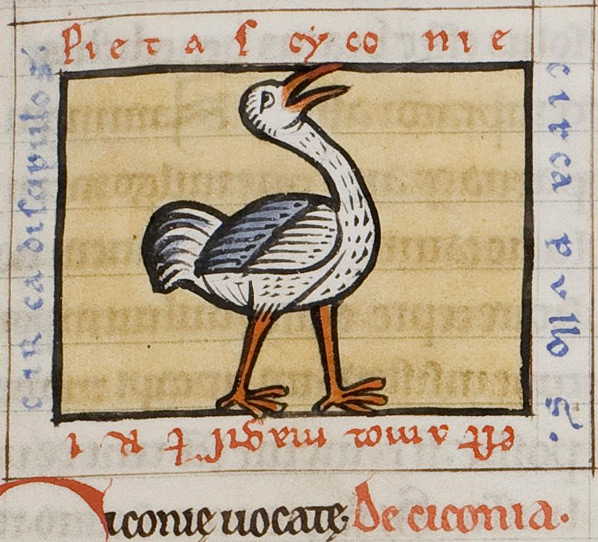 Pietas cyconie
circa pullos.
amor magistri
circa discipulos
Ciconię uocatę. De ciconia.